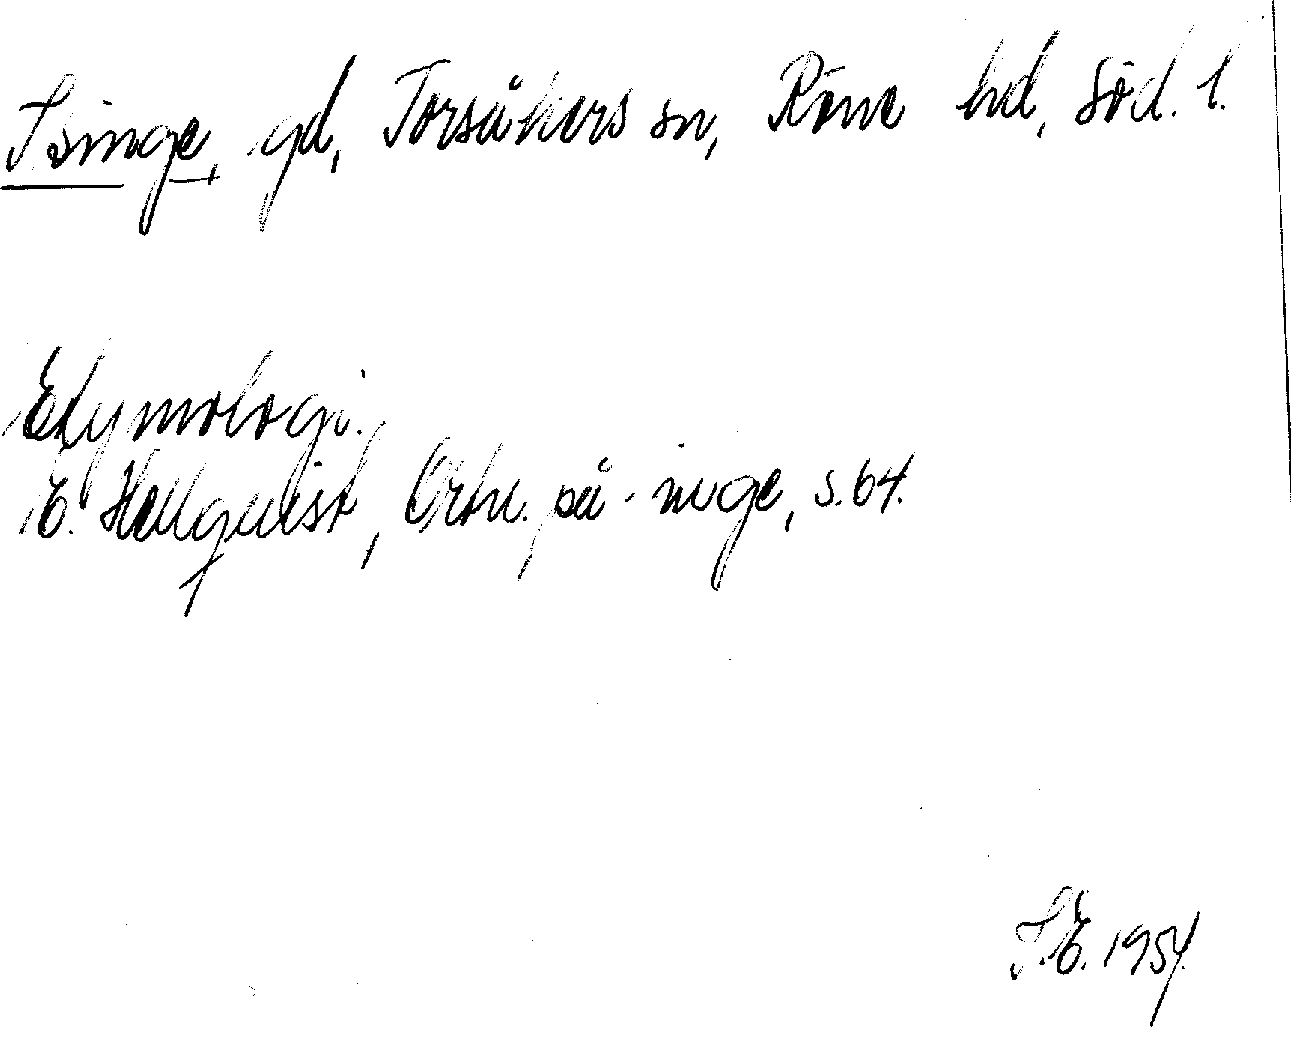 Isinge, gd, Torsåkers sn, Rönö hd, Söd. l.
Etymologi.
E. Hellquist, Ortn. på -inge, s. 64.
I.E. 1954